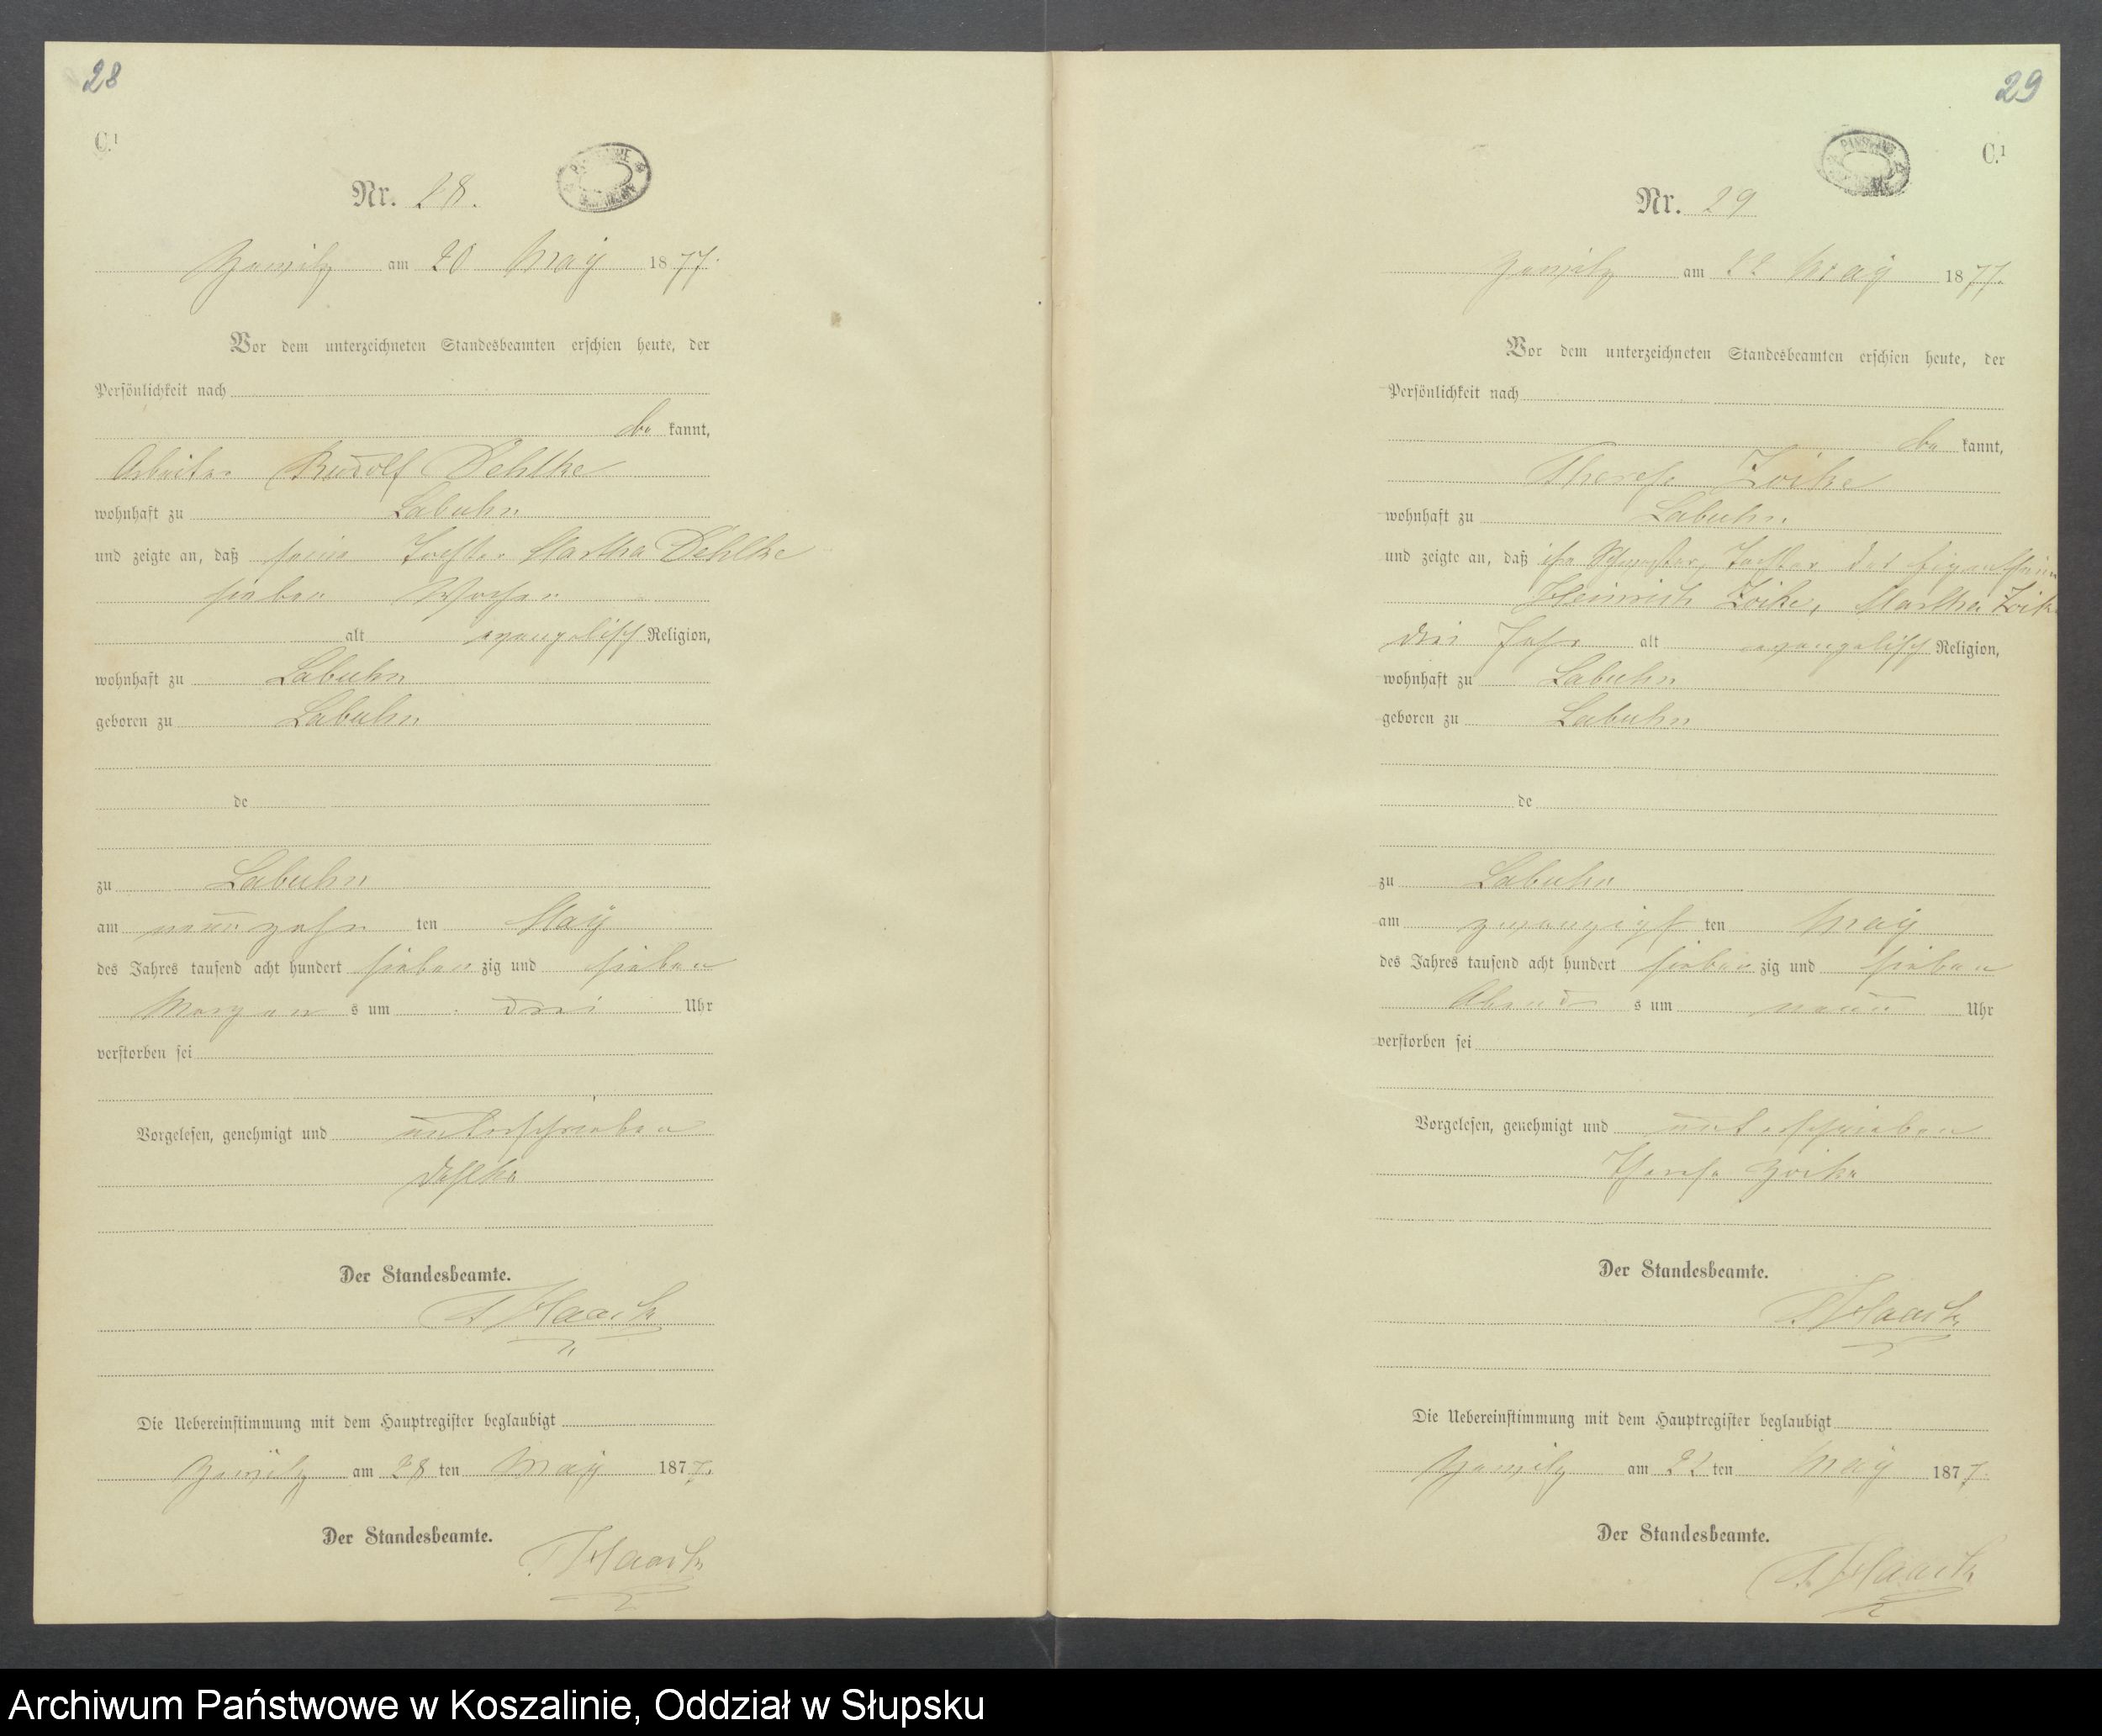 28
C.¹
Nr. 28.
am 20 May 1877.
Vor dem unterzeichneten Standesbeamten erschien heute, der
Persönlichkeit nach
be kannt,
Arbeiter Rudolf Dehlke
wohnhaft zu Labuhn
und zeigte an, daß seine Tochter Martha Dehlke
sieben Wochen
alt evangelisch Religion,
wohnhaft zu Labuhn
geboren zu Labuhn
de
zu Labuhn
am neunzehn ten May
des Jahres tausend acht hundert sieben zig und sieben
Morgen s um drei Uhr
verstorben sei
Vorgelesen, genehmigt und unterschrieben
Dehlke
Der Standesbeamte.
Haack
Die Uebereinstimmung mit dem Hauptregister beglaubigt
am 28 ten May 1877.
Der Standesbeamte.
Haack
29
C.¹
Nr. 29
am 22 May 1877.
Vor dem unterzeichneten Standesbeamten erschien heute, der
Persönlichkeit nach
be kannt,
Therese Zoike
wohnhaft zu Labuhn
und zeigte an, daß ihre Schwester, Tochter des Eigenthümer
Heinrich Zoike, Martha Zoike
drei Jahr alt evangelisch Religion,
wohnhaft zu Labuhn
geboren zu Labuhn
de
zu Labuhn
am zwanzigst ten May
des Jahres tausend acht hundert sieben zig und sieben
Abend s um neun Uhr
verstorben sei
Vorgelesen, genehmigt und unterschrieben
Therese Zoike
Der Standesbeamte.
Haack
Die Uebereinstimmung mit dem Hauptregister beglaubigt
am 22 ten May 1877.
Der Standesbeamte.
Haack
Archiwum Państwowe w Koszalinie, Oddział w Słupsku